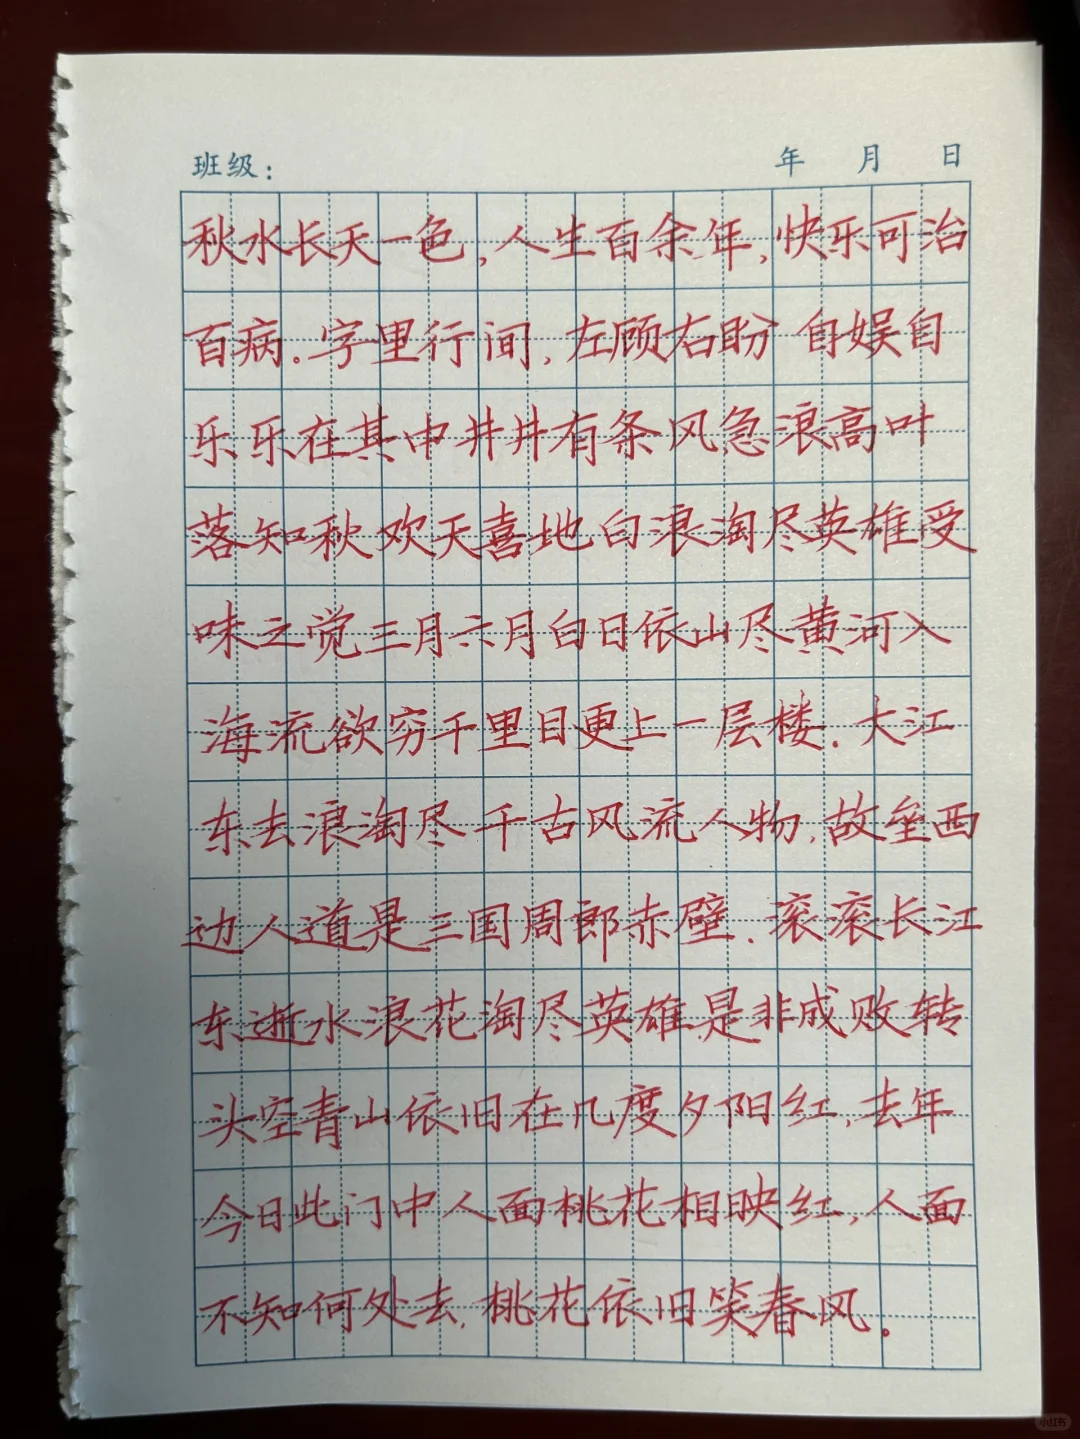 班级： 年 月 日
秋水长天一色，人生百余年，快乐可治
百病。字里行间，左顾右盼 自娱自
乐乐在其中井井有条风急浪高叶
落知秋欢天喜地白浪淘尽英雄受
味之觉三月六月白日依山尽黄河入
海流欲穷千里目更上一层楼．大江
东去浪淘尽千古风流人物，故垒西
边人道是三国周郎赤壁．滚滚长江
东逝水浪花淘尽英雄是非成败转
头空青山依旧在几度夕阳红，去年
今日此门中人面桃花相映红，人面
不知何处去，桃花依旧笑春风。
小红书